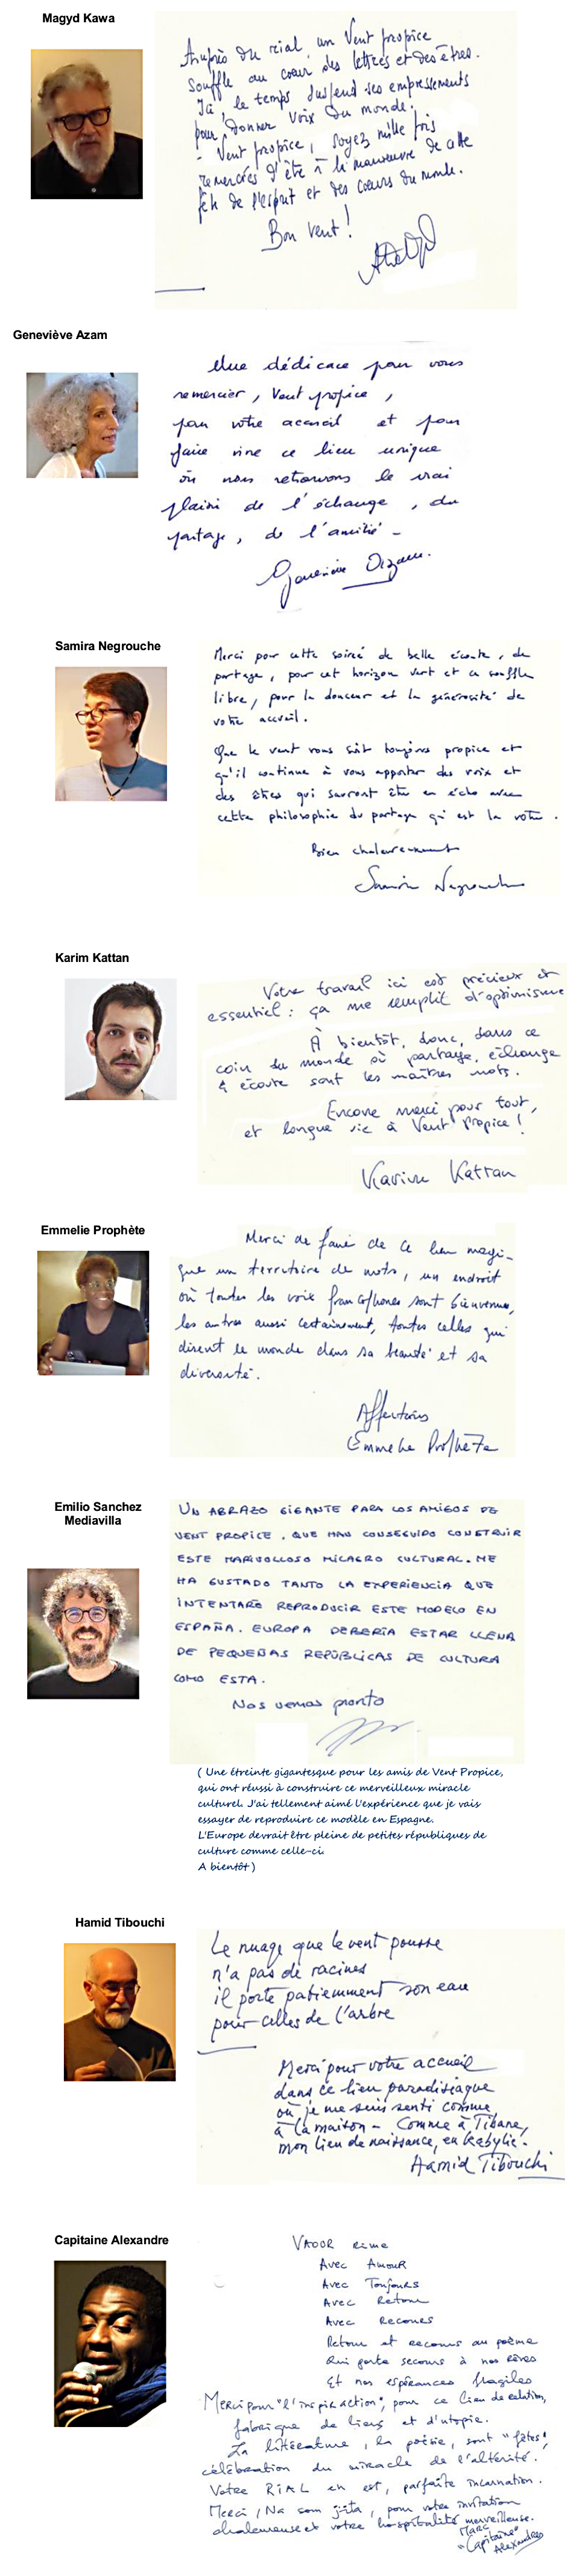 Magyd Kawa
Auprès du rial, un Vent propice
souffle au cœur des lettres et des êtres.
Ici, le temps suspend ses empressements
pour donner voix du monde.
- Vent propice, soyez mille fois
remerciés d'être à la manœuvre de cette
fête de l'esprit et des cœurs du monde.
Bon vent !
Geneviève Azam
Une dédicace pour vous
remercier, Vent propice,
pour votre accueil et pour
faire vivre ce lieu unique
où nous retrouvons le vrai
plaisir de l'échange, du
partage, de l'amitié -
Geneviève Azam.
Samira Negrouche
Merci pour cette soirée de belle écoute, de
partage, pour cet horizon vert et ce souffle
libre, pour la douceur et la générosité de
votre accueil.
Que le vent vous soit toujours propice et
qu'il continue à vous apporter des voix et
des êtres qui sauront être en écho avec
cette philosophie du partage qui est la vôtre.
Bien chaleureusement
Samira Negrouche
Karim Kattan
Votre travail ici est précieux et
essentiel : ça me remplit d'optimisme
À bientôt, donc, dans ce
coin du monde où partage, échange
& écoute sont les maîtres mots.
Encore merci pour tout,
et longue vie à Vent Propice !
Karim Kattan
Emmelie Prophète
Merci de faire de ce lieu magi-
que un territoire de mots, un endroit
où toutes les voix francophones sont bienvenues,
les autres aussi certainement, toutes celles qui
disent le monde dans sa beauté et sa
diversité.
Affections
Emmelie Prophète
Emilio Sanchez
Mediavilla
UN ABRAZO GIGANTE PARA LOS AMIGOS DE
VENT PROPICE, QUE HAN CONSEGUIDO CONSTRUIR
ESTE MARIVOLLOSO MILAGRO CULTURAL. ME
HA GUSTADO TANTO LA EXPERIENCIA QUE
INTENTARÉ REPRODUCIR ESTE MODELO EN
ESPAÑA. EUROPA DEBERÍA ESTAR LLENA
DE PEQUEÑAS REPÚBLICAS DE CULTURA
COMO ESTA.
Nos vemos pronto
( Une étreinte gigantesque pour les amis de Vent Propice,
qui ont réussi à construire ce merveilleux miracle
culturel. J'ai tellement aimé l'expérience que je vais
essayer de reproduire ce modèle en Espagne.
L'Europe devrait être pleine de petites républiques de
culture comme celle-ci.
A bientôt )
Hamid Tibouchi
Le nuage que le vent pousse
n'a pas de racines
il porte patiemment son eau
pour celles de l'arbre
Merci pour votre accueil
dans ce lieu paradisiaque
où je me suis senti comme
à la maison - Comme à Tibane,
mon lieu de naissance, en Kabylie.
Hamid Tibouchi
Capitaine Alexandre
VAOUR rime
Avec Amour
Avec Toujours
Avec Retour
Avec Recours
Retour et recours au poème
Qui porte secours à nos rêves
Et nos espérances fragiles
Merci pour "l'inspiraction", pour ce lieu de relation,
fabrique de liens et d'utopie.
La littérature, la poésie, sont "fêtes",
célébration du miracle de l'altérité.
Votre RIAL en est, parfaite incarnation.
Merci, Na som jiita, pour votre invitation
chaleureuse et votre hospitalité merveilleuse.
Marc
"Capitaine
Alexandre"